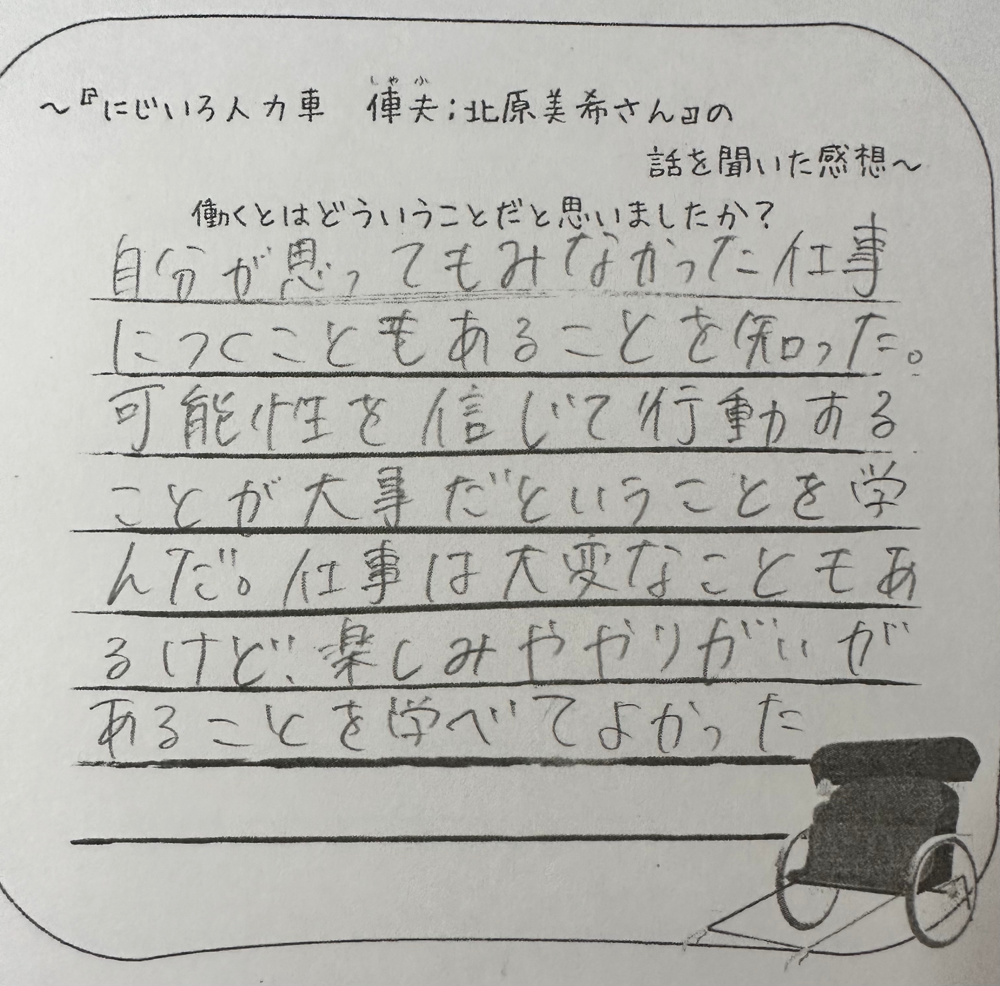 ～『にじいろ人力車　俥夫：北原美希さん』の
話を聞いた感想～
働くとはどういうことだと思いましたか？
自分が思ってもみなかった仕事
につくこともあることを知った。
可能性を信じて行動する
ことが大事だということを学
んだ。仕事は大変なこともあ
るけど、楽しみややりがいが
あることを学べてよかった